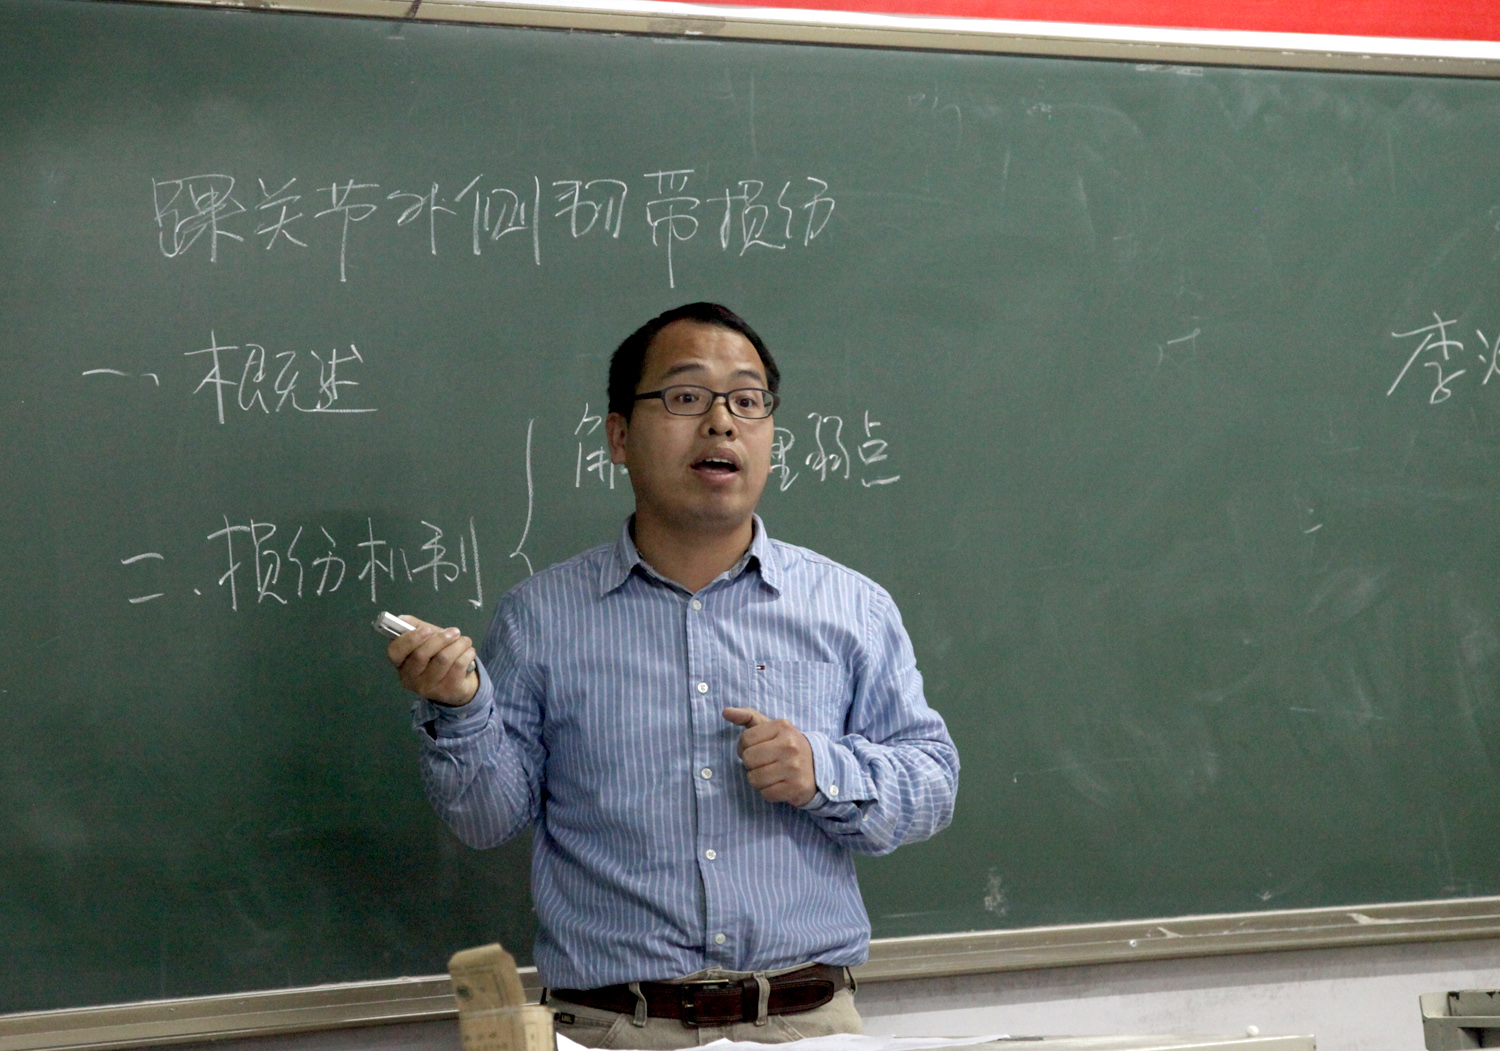 踝关节外侧韧带损伤
一、概述
解 理弱点
二、损伤机制
李